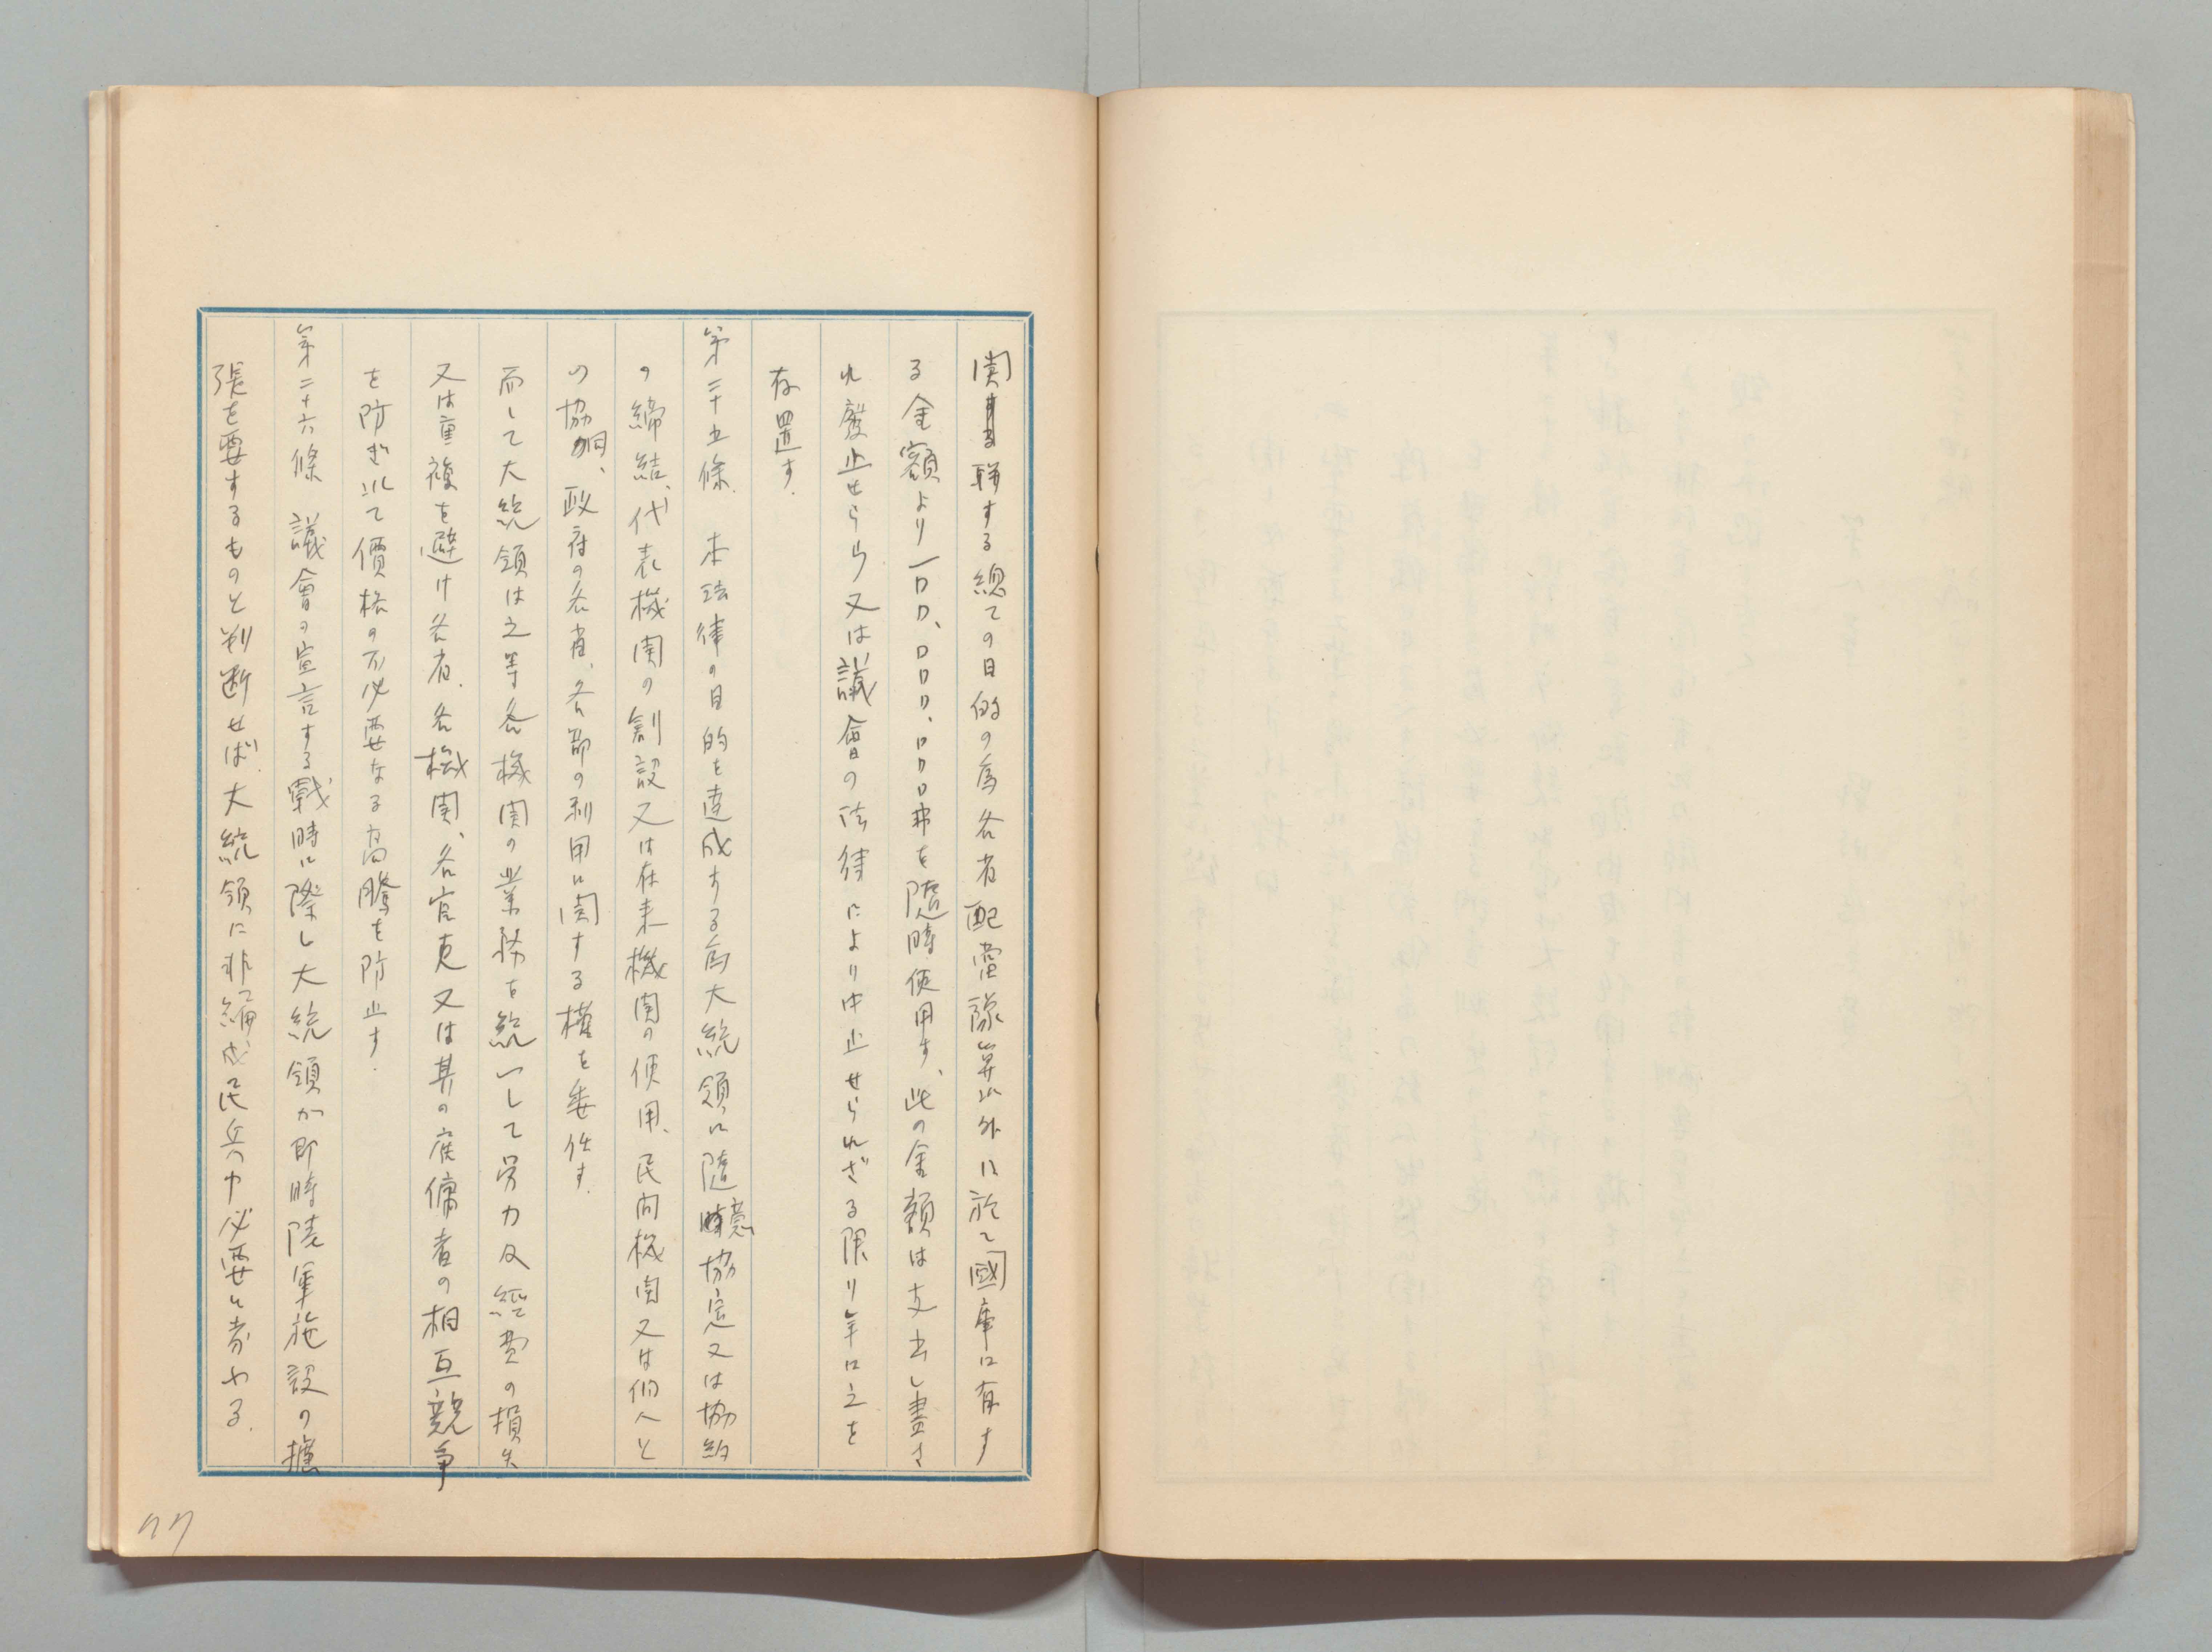 関聯する總ての目的の為各省配當豫算以外に於て國庫に有す
る金額より一〇〇、〇〇〇、〇〇〇弗を隨時使用す、此の金額は支出し盡さ
れ廢止せらら又は議會の法律により中止せられざる限り年に之を
存置す.
第二十五條. 本法律の目的を達成する為大統領に隨意協定又は協約
の締結、代表機関の創設又は在来機関の使用、民間機関又は個人と
の協同、政府の各省、各部の利用に関する權を委任す.
而して大統領は之等各機関の業務を統一して労力及經費の損失
又は重複を避け各省、各機関、各官吏又は其の雇傭者の相互競爭
を防ぎ以て價格の不必要なる高騰を防止す.
第二十六條 議會の宣言する戰時に際し大統領が即時陸軍施設の擴
張を要するものと判断せば、大統領に非編成民兵中必要と考ふる.
77